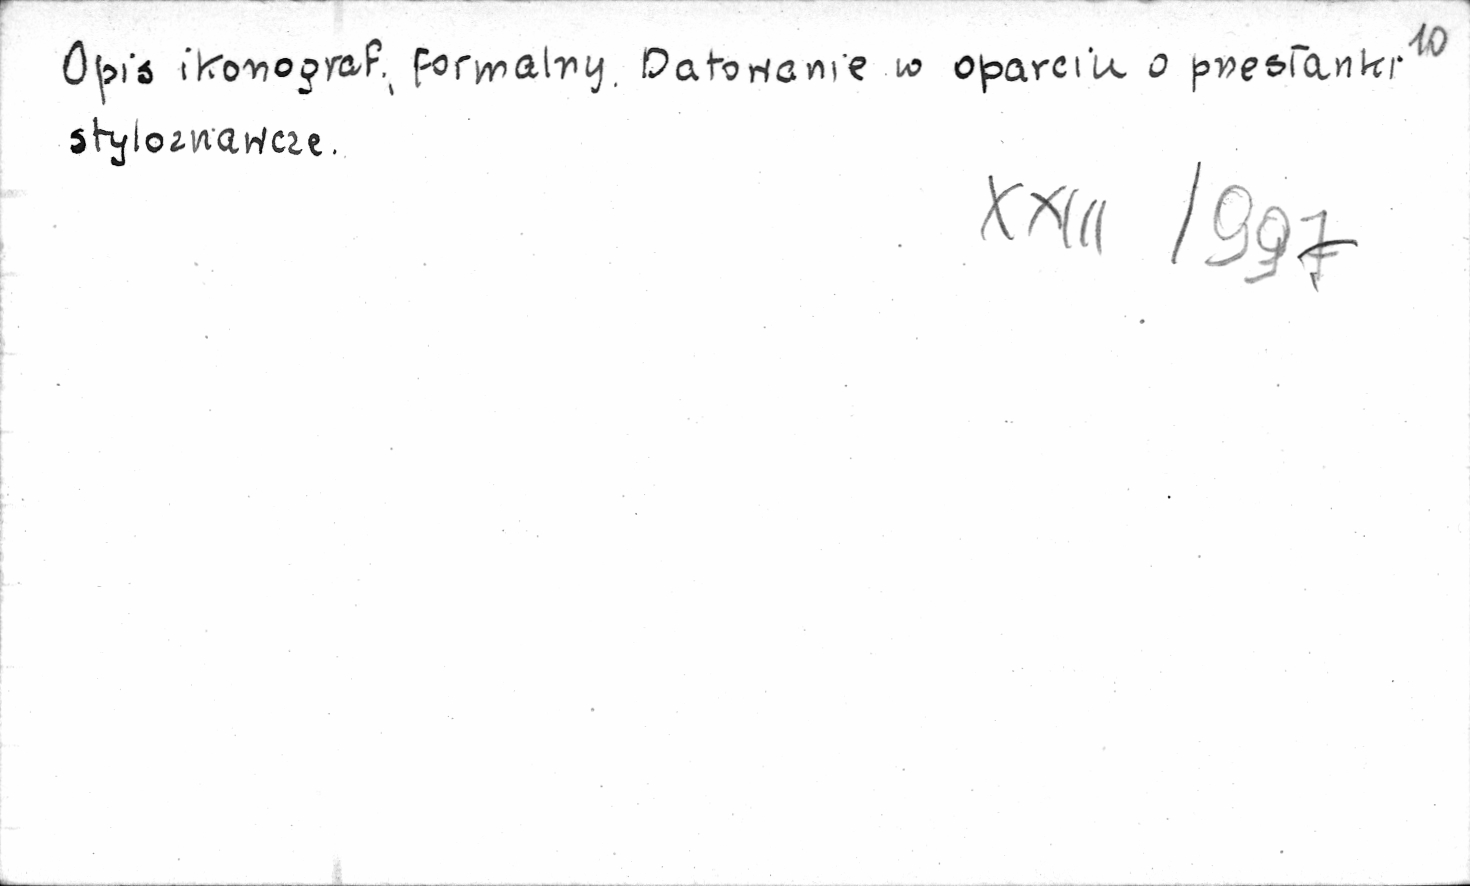 Opis ikonograf., formalny. Datowanie w oparciu o przesłanki 10
styloznawcze.
XXIII /997